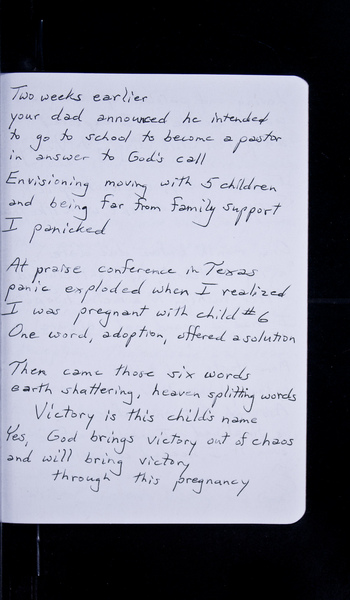 Two weeks earlier
your dad announced he intended
to go to school to become a pastor
in answer to God's call
Envisioning moving with 5 children
and being far from family support
I panicked
At praise conference in Texas
panic exploded when I realized
I was pregnant with child #6
One word, adoption, offered a solution
Then came those six words
earth shattering, heaven splitting words
Victory is this child's name
Yes, God brings victory out of chaos
and will bring victory
through this pregnancy